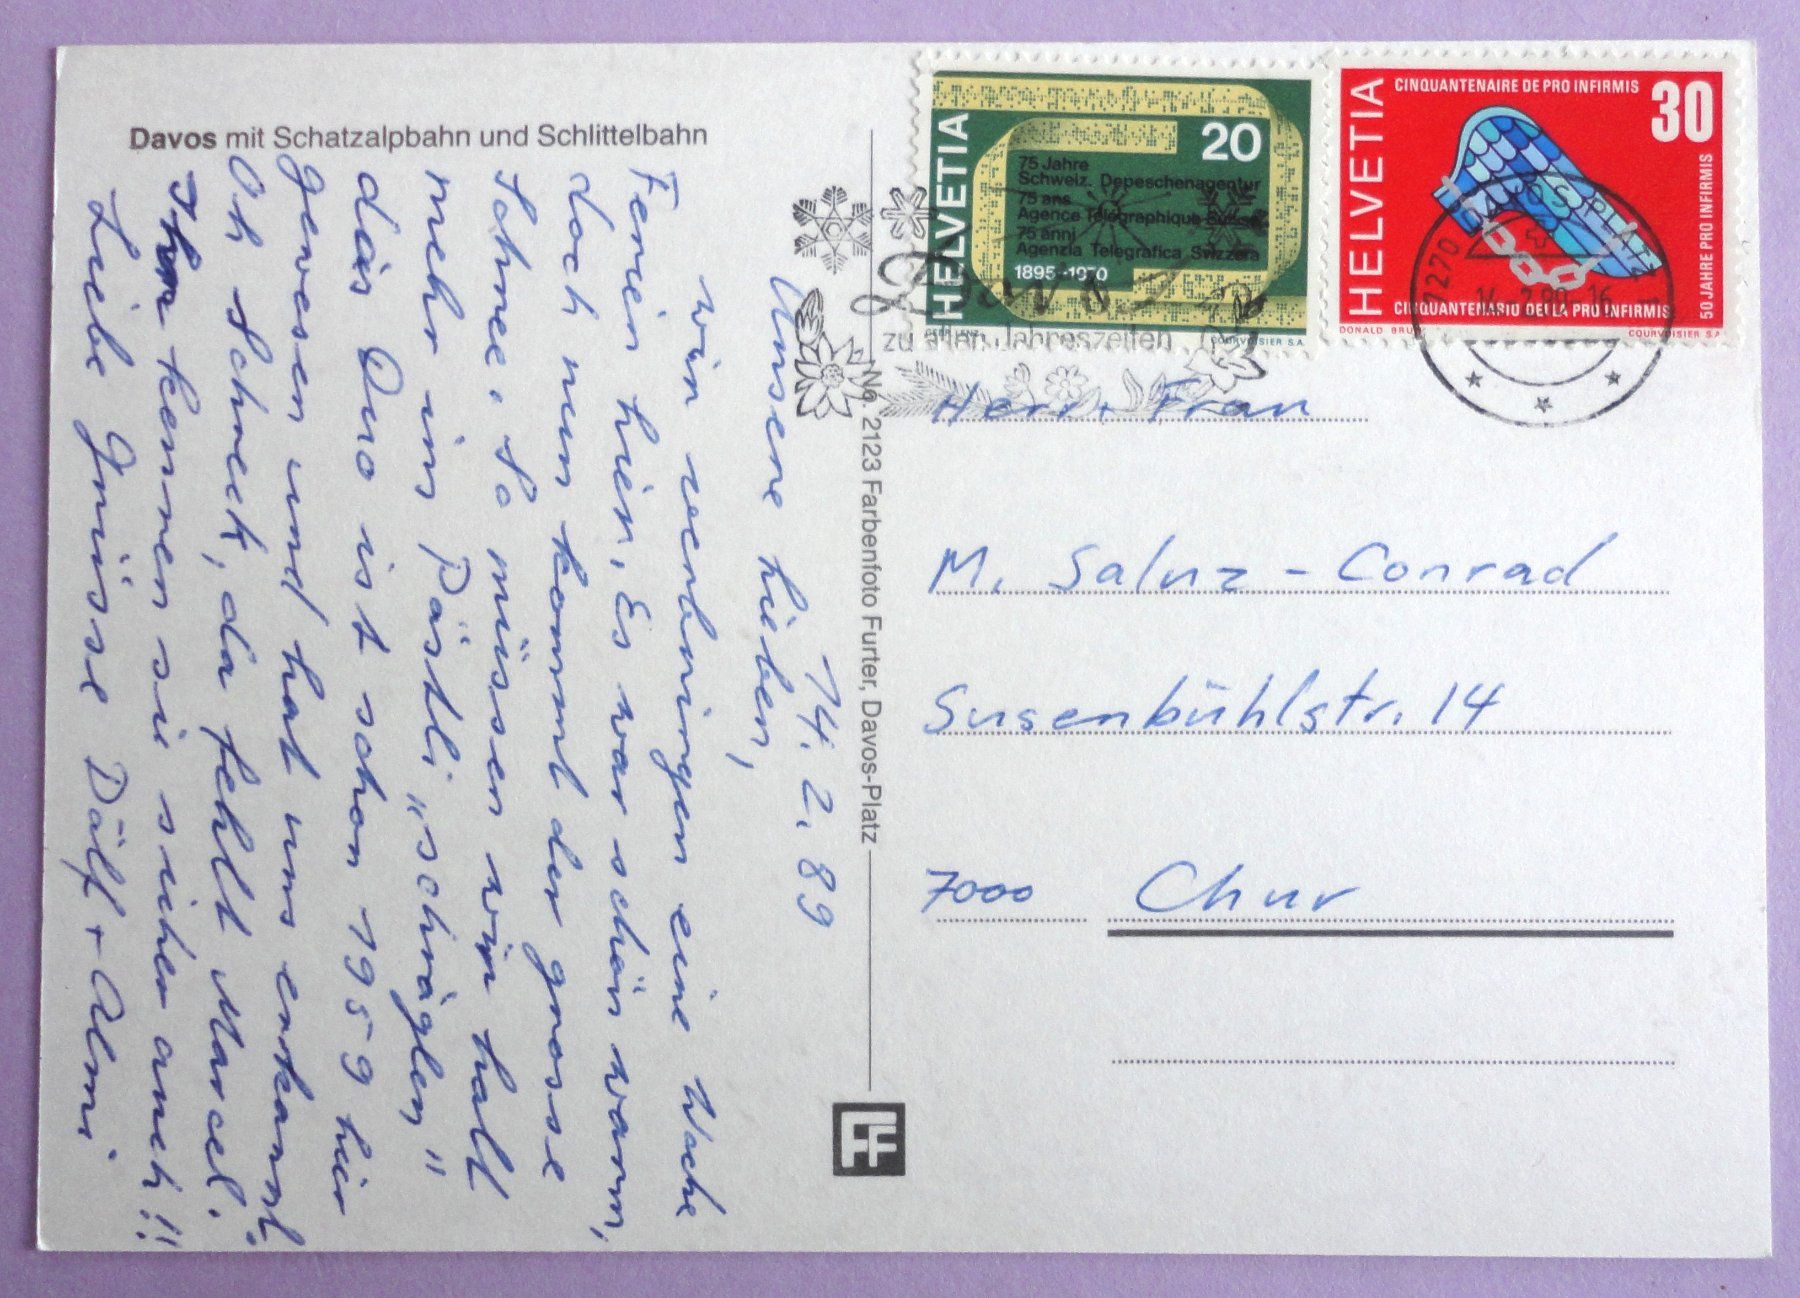 Davos mit Schatzalpbahn und Schlittelbahn
14.2.89
Unsere lieben,
wir verbringen eine Woche
Ferien hier. Es war schön warm,
doch nun kommt der grosse
Schnee. So müssen wir halt
mehr im Pöstli „schräglen"
das Duo ist schon 1959 hier
gewesen und hat uns erkannt.
Oh Schreck, da fehlt Marcel.
Ihn kennen sie sicher auch!!
Liebe Grüsse Dölf + Almi
No. 2123 Farbenfoto Furter, Davos-Platz
FF
HELVETIA
20
75 Jahre
Schweiz. Depeschenagentur
75 ans
Agence Télégraphique Suisse
75 anni
Agenzia Telegrafica Svizzera
1895-1970
COURVOISIER S.A.
HELVETIA
CINQUANTENAIRE DE PRO INFIRMIS
30
50 JAHRE PRO INFIRMIS
CINQUANTENARIO DELLA PRO INFIRMIS
DONALD BRUN
COURVOISIER S.A.
Davos
zu allen Jahreszeiten
7270 DAVOS PLATZ 1
14.-2.89-16
Herr. Frau
M. Salnz - Conrad
Susenbühlstr. 14
7000 Chur